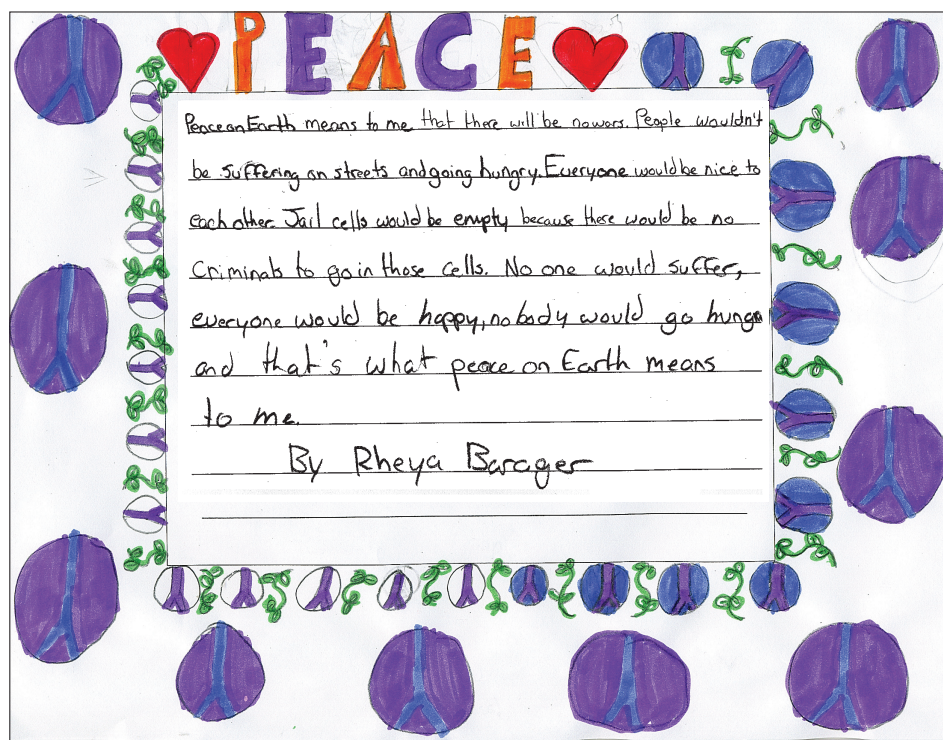 PEACE
Peace on Earth means to me that there will be no wars. People wouldn't
be suffering on streets and going hungry. Everyone would be nice to
each other. Jail cells would be empty because there would be no
criminals to go in those cells. No one would suffer,
everyone would be happy, nobody would go
and that's what peace on Earth means
to me.
By Rheya Barager